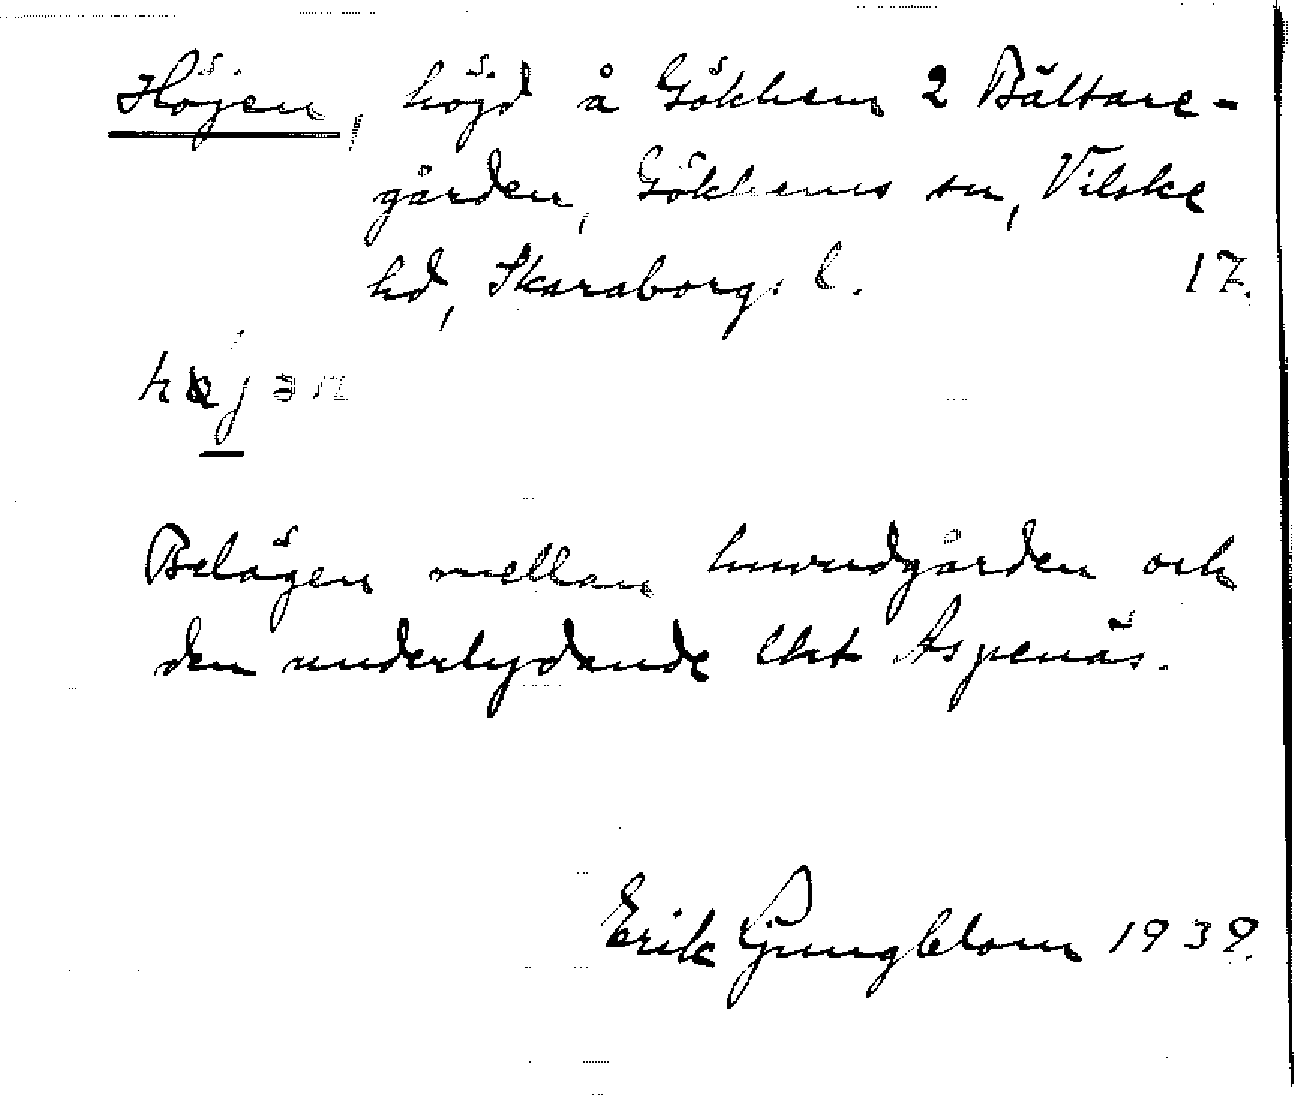 Höjen, höjd å Gökhem 2 Bältare-
gården, Gökhems sn, Vilske
hd, Skaraborgs l. 17.
Belägen mellan huvudgården och
den underlydande lht Aspenäs.
Erik Ljungblom 1939.